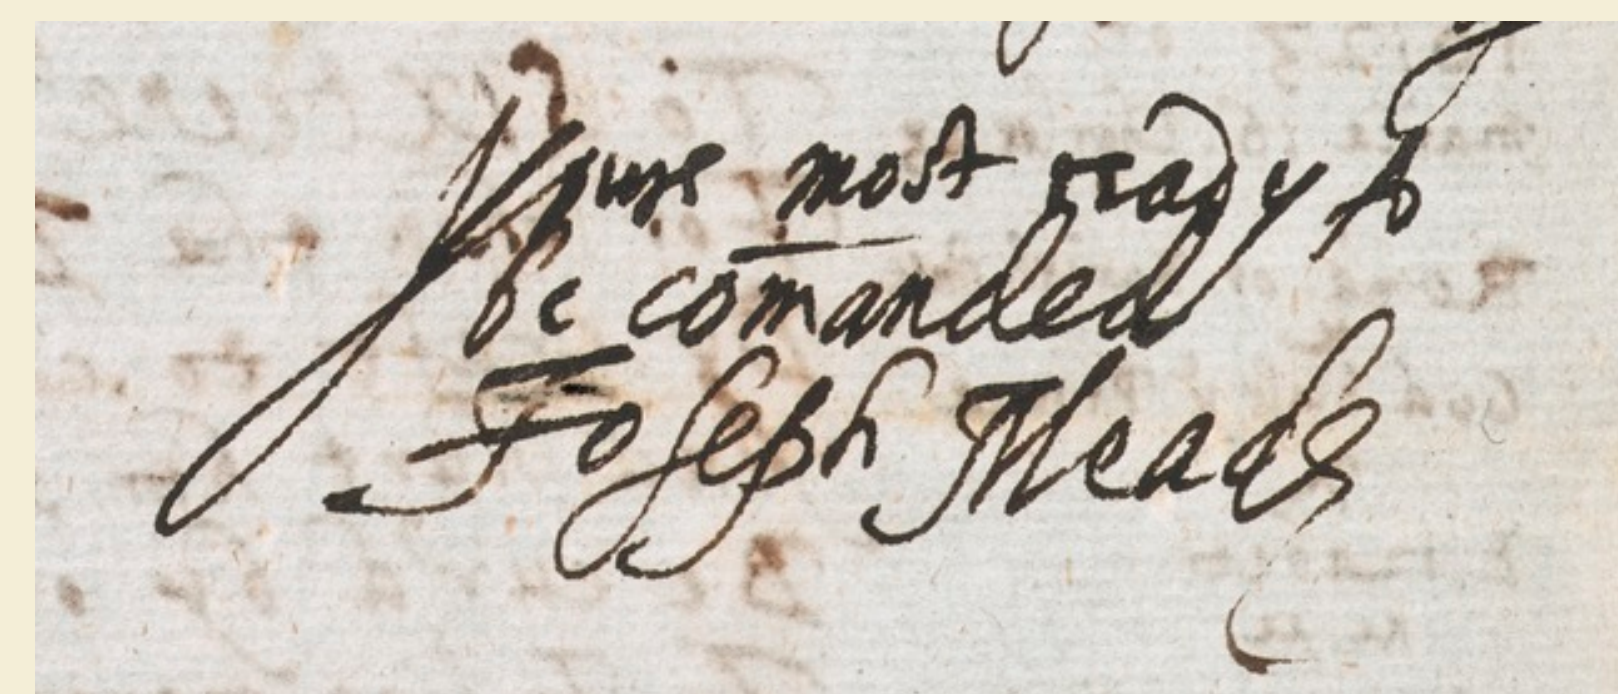 Yours most ready to
be com̄anded
Joseph Meade